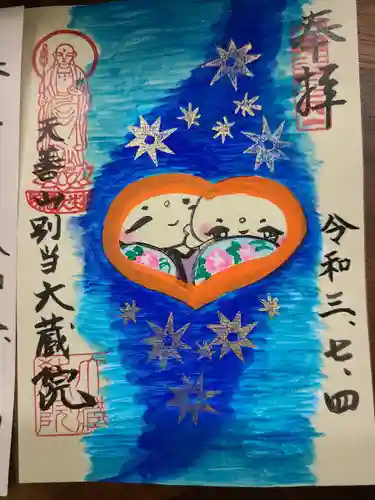 奉拝
令和三、七、四
天善山別当大蔵院